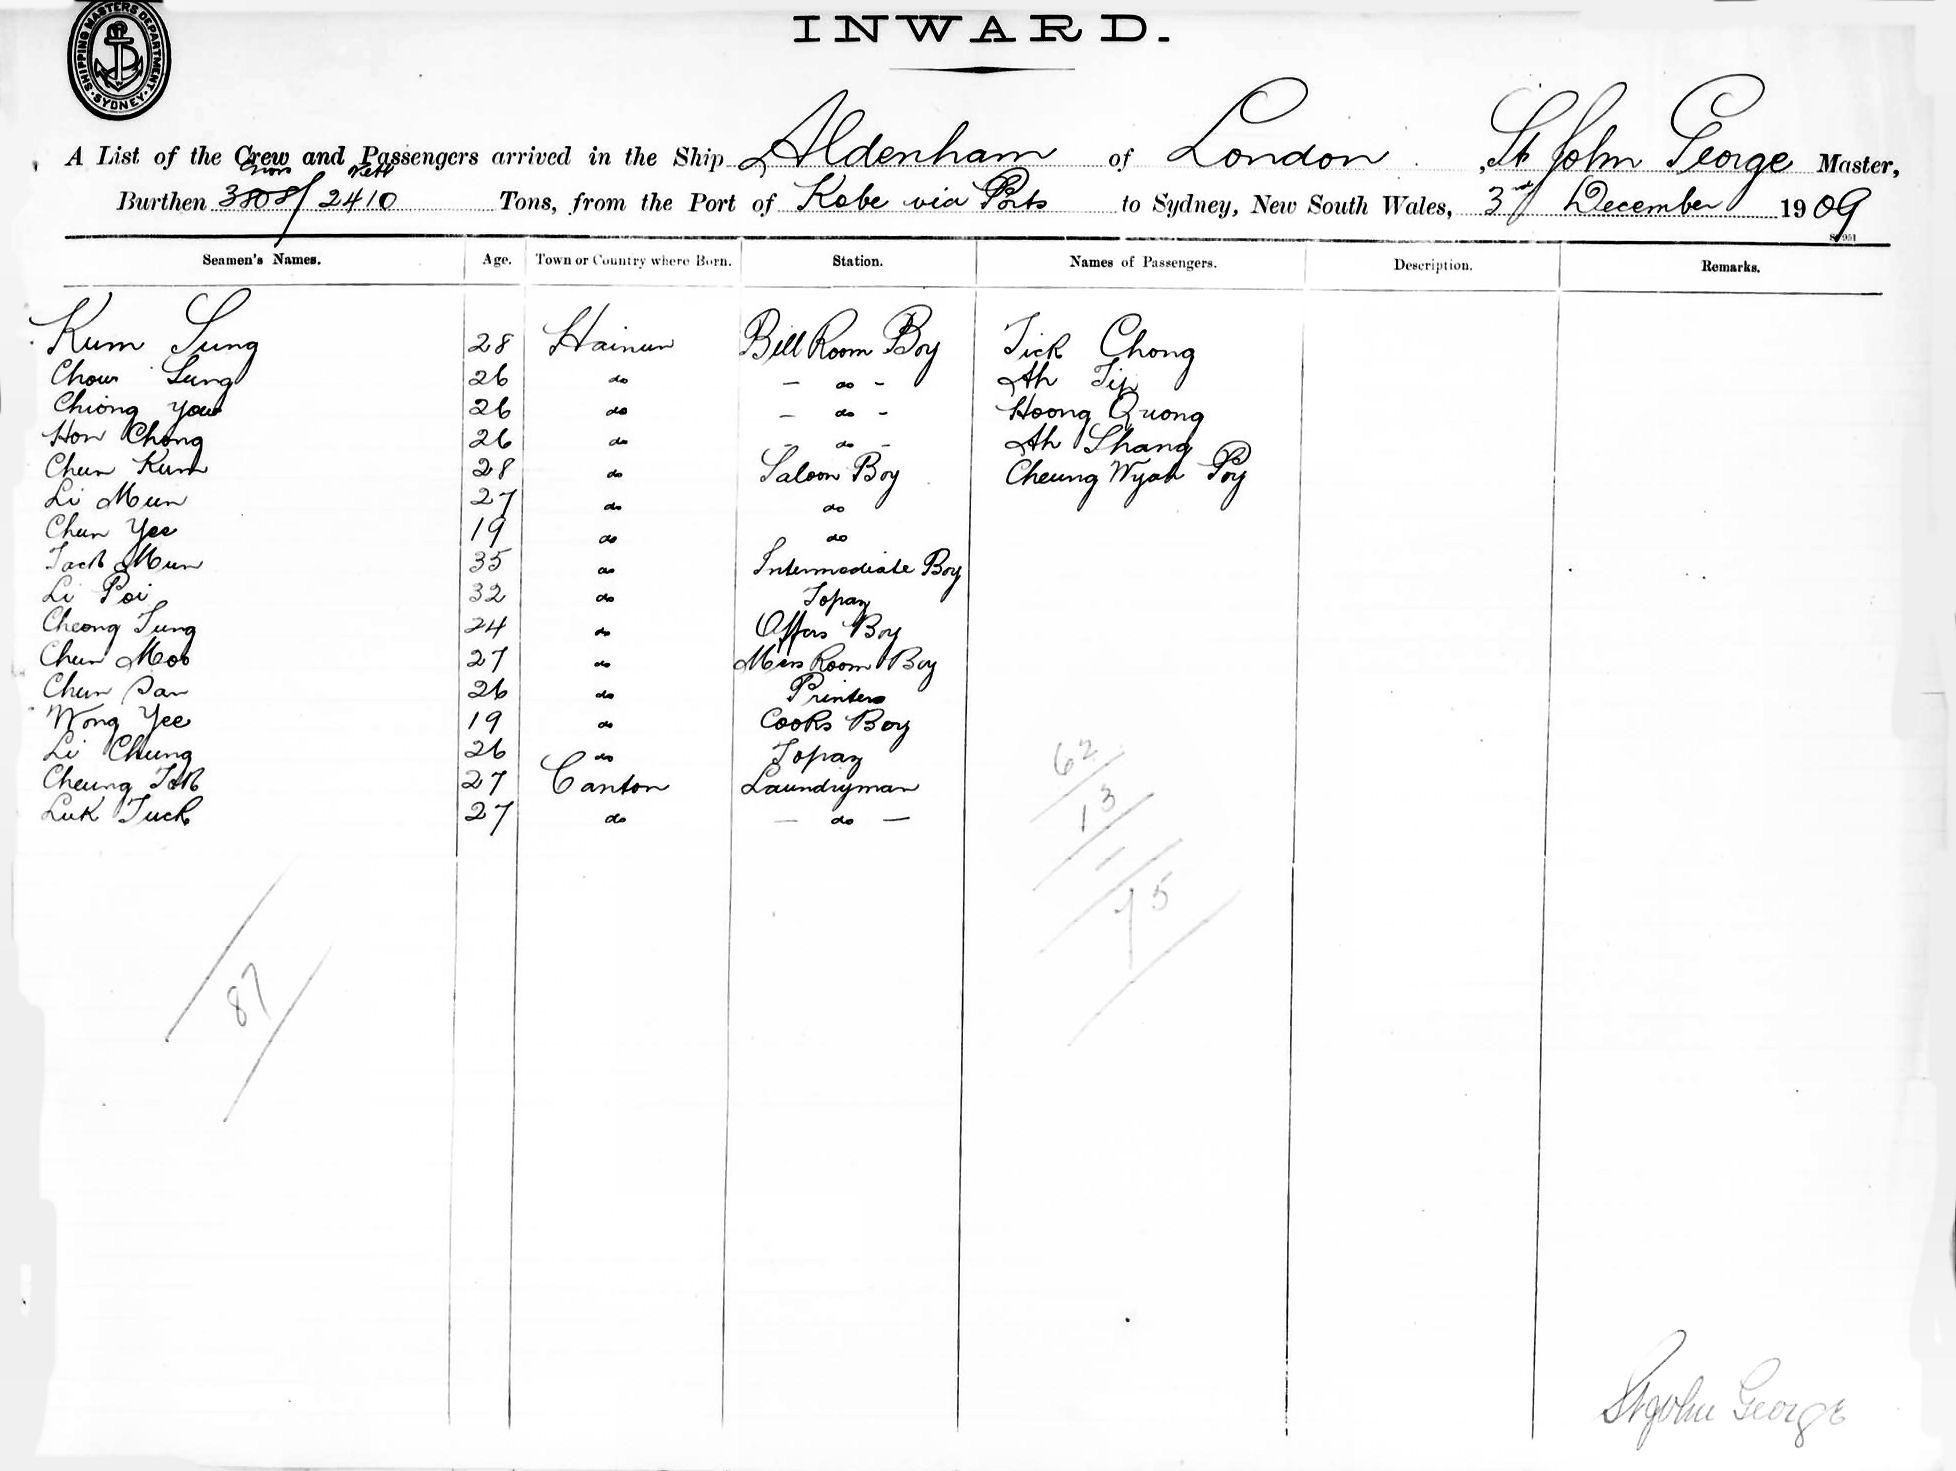 SHIPPING MASTERS DEPARTMENT. SYDNEY.
INWARD.
A List of the Crew and Passengers arrived in the Ship Aldenham of London, St John George Master,
Gross Nett
Burthen 3808/2410 Tons, from the Port of Kobe via Ports to Sydney, New South Wales, 3rd December 1909
Seamen's Names. Age. Town or Country where Born. Station. Names of Passengers. Description. Remarks.
Kum Sung 28 Hainun Bill Room Boy Tick Chong
Chow Sung 26 do - do - Ah Tip
Chiong You 26 do - do - Hoong Quong
Hon Chong 26 do - do - Ah Shang
Chun Kum 28 do Saloon Boy Cheung Wyah Poy
Li Mun 27 do do
Chun Yee 19 do do
Tack Mun 35 do Intermediate Boy
Li Poi 32 do Topaz
Cheong Tung 24 do Offers Boy
Chun Moo 27 do Mess Room Boy
Chun San 26 do Printers
Wong Yee 19 do Cooks Boy
Li Chung 26 do Topaz
Cheung Tok 27 Canton Laundryman
Luk Tuck 27 do - do -
62
13
1
75
87
St John George